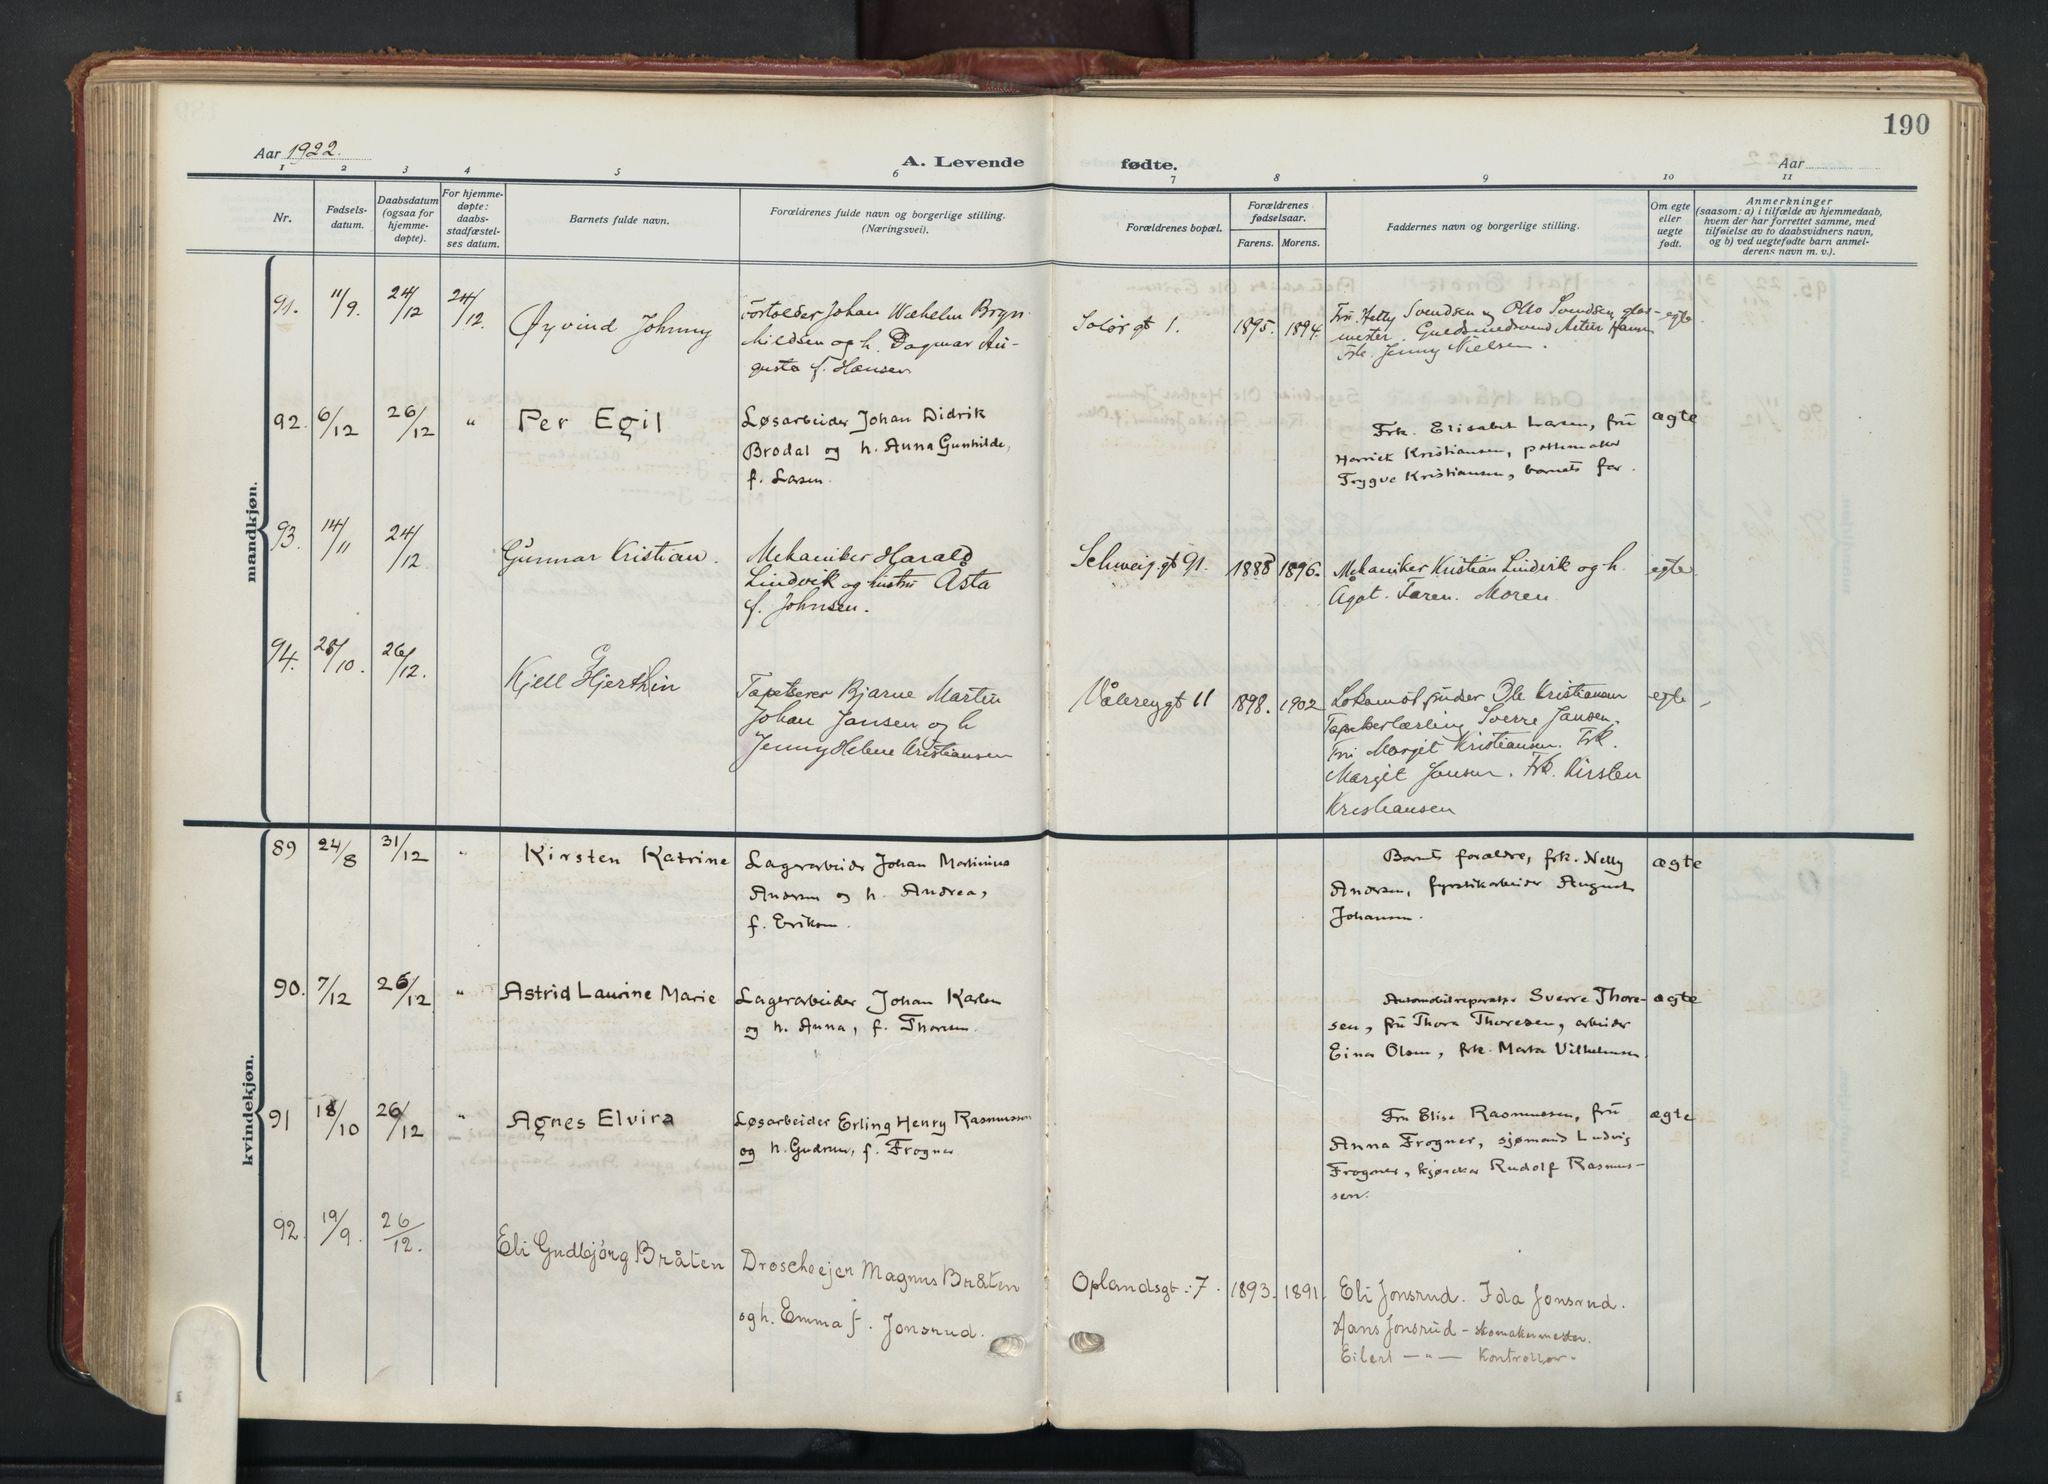 190
Aar 1922.
A. Levende fødte.
Aar
1 2 3 4 5 6 7 8 9 10 11
Nr.
Fødsels-
datum.
Daabsdatum
(ogsaa for
hjemme-
døpte).
For hjemme-
døpte:
daabs-
stadfæstel-
ses datum.
Barnets fulde navn.
Forældrenes fulde navn og borgerlige stilling.
(Næringsvei).
Forældrenes bopæl.
Forældrenes
fødselsaar.
Farens. Morens.
Faddernes navn og borgerlige stilling.
Om egte
eller
uegte
født.
Anmerkninger
(saasom: a) i tilfælde av hjemmedaab,
hvem der har forrettet samme, med
tilføielse av to daabsvidners navn,
og b) ved uegtefødte barn anmel-
derens navn m. v.).
mandkjøn.
91. 11/9. 24/12 24/12.
Øyvind Johnny
Fortolder Johan Wilhelm Bryn-
hildsen og h. Dagmar Au-
gusta f. Hansen
Solørgt 1. 1895. 1894.
Fru Hetty Svendsen og Otto Svendsen, glas-
mester. Guldsmedsvend Artur Hann
Frk. Jenny Nielsen.
egte
92. 6/12 26/12 "
Per Egil
Løsarbeider Johan Didrik
Brodal og h. Anna Gunhilde,
f. Larsen.
Frk. Elisabet Larsen, fru
Harriet Kristiansen, pottemaker
Trygve Kristiansen, barnets far.
ægte
93. 14/11 24/12
Gunnar Kristian.
Mekaniker Harald
Lindvik og hustru Asta
f. Johnsen.
Schweigt 91. 1888 1896.
Mekaniker Kristian Lindvik og h.
Agot. Faren. Moren.
egte
94. 25/10. 26/12.
Kjell Gjerthin
Tapetserer Bjarne Martin
Johan Jansen og h
Jenny Helene Kristiansen
Vålerenggt 11 1898. 1902
Lokomotfyrbøder Ole Kristiansen
Tapetserlærling Sverre Jansen.
Fru Margit Kristiansen. Frk.
Margit Jansen. Frk. Kirsten
Kristiansen
egte
kvindekjøn.
89 24/8 31/12 "
Kirsten Katrine
Lagerarbeider Johan Martinius
Andersen og h. Andrea,
f. Eriksen.
Barnets forældre, frk. Nelly
Andersen, fyrstikarbeider August
Johansen.
ægte
90. 7/12 26/12 "
Astrid Laurine Marie
Lagerarbeider Johan Karlsen
og h. Anna, f. Thoresen.
Automobilreparatør Sverre Thore-
sen, fru Thora Thoresen, arbeider
Einar Olsen, frk. Marta Vilhelmsen.
ægte
91 18/10 26/12 "
Agnes Elvira
Løsarbeider Erling Henry Rasmussen
og h. Gudrun, f. Frogner
Fru Elise Rasmussen, fru
Anna Frogner, sjømand Ludvig
Frogner, kjørekar Rudolf Rasmus-
sen.
ægte
92. 19/9. 26/12.
Eli Gudbjørg Bråten
Droscheejer Magnus Bråten
og h. Emma f. Jonsrud.
Oplandsgt: 7. 1893. 1891.
Eli Jonsrud. Ida Jonsrud.
Hans Jonsrud – skomakermester.
Eilert — " — Kontrollør.